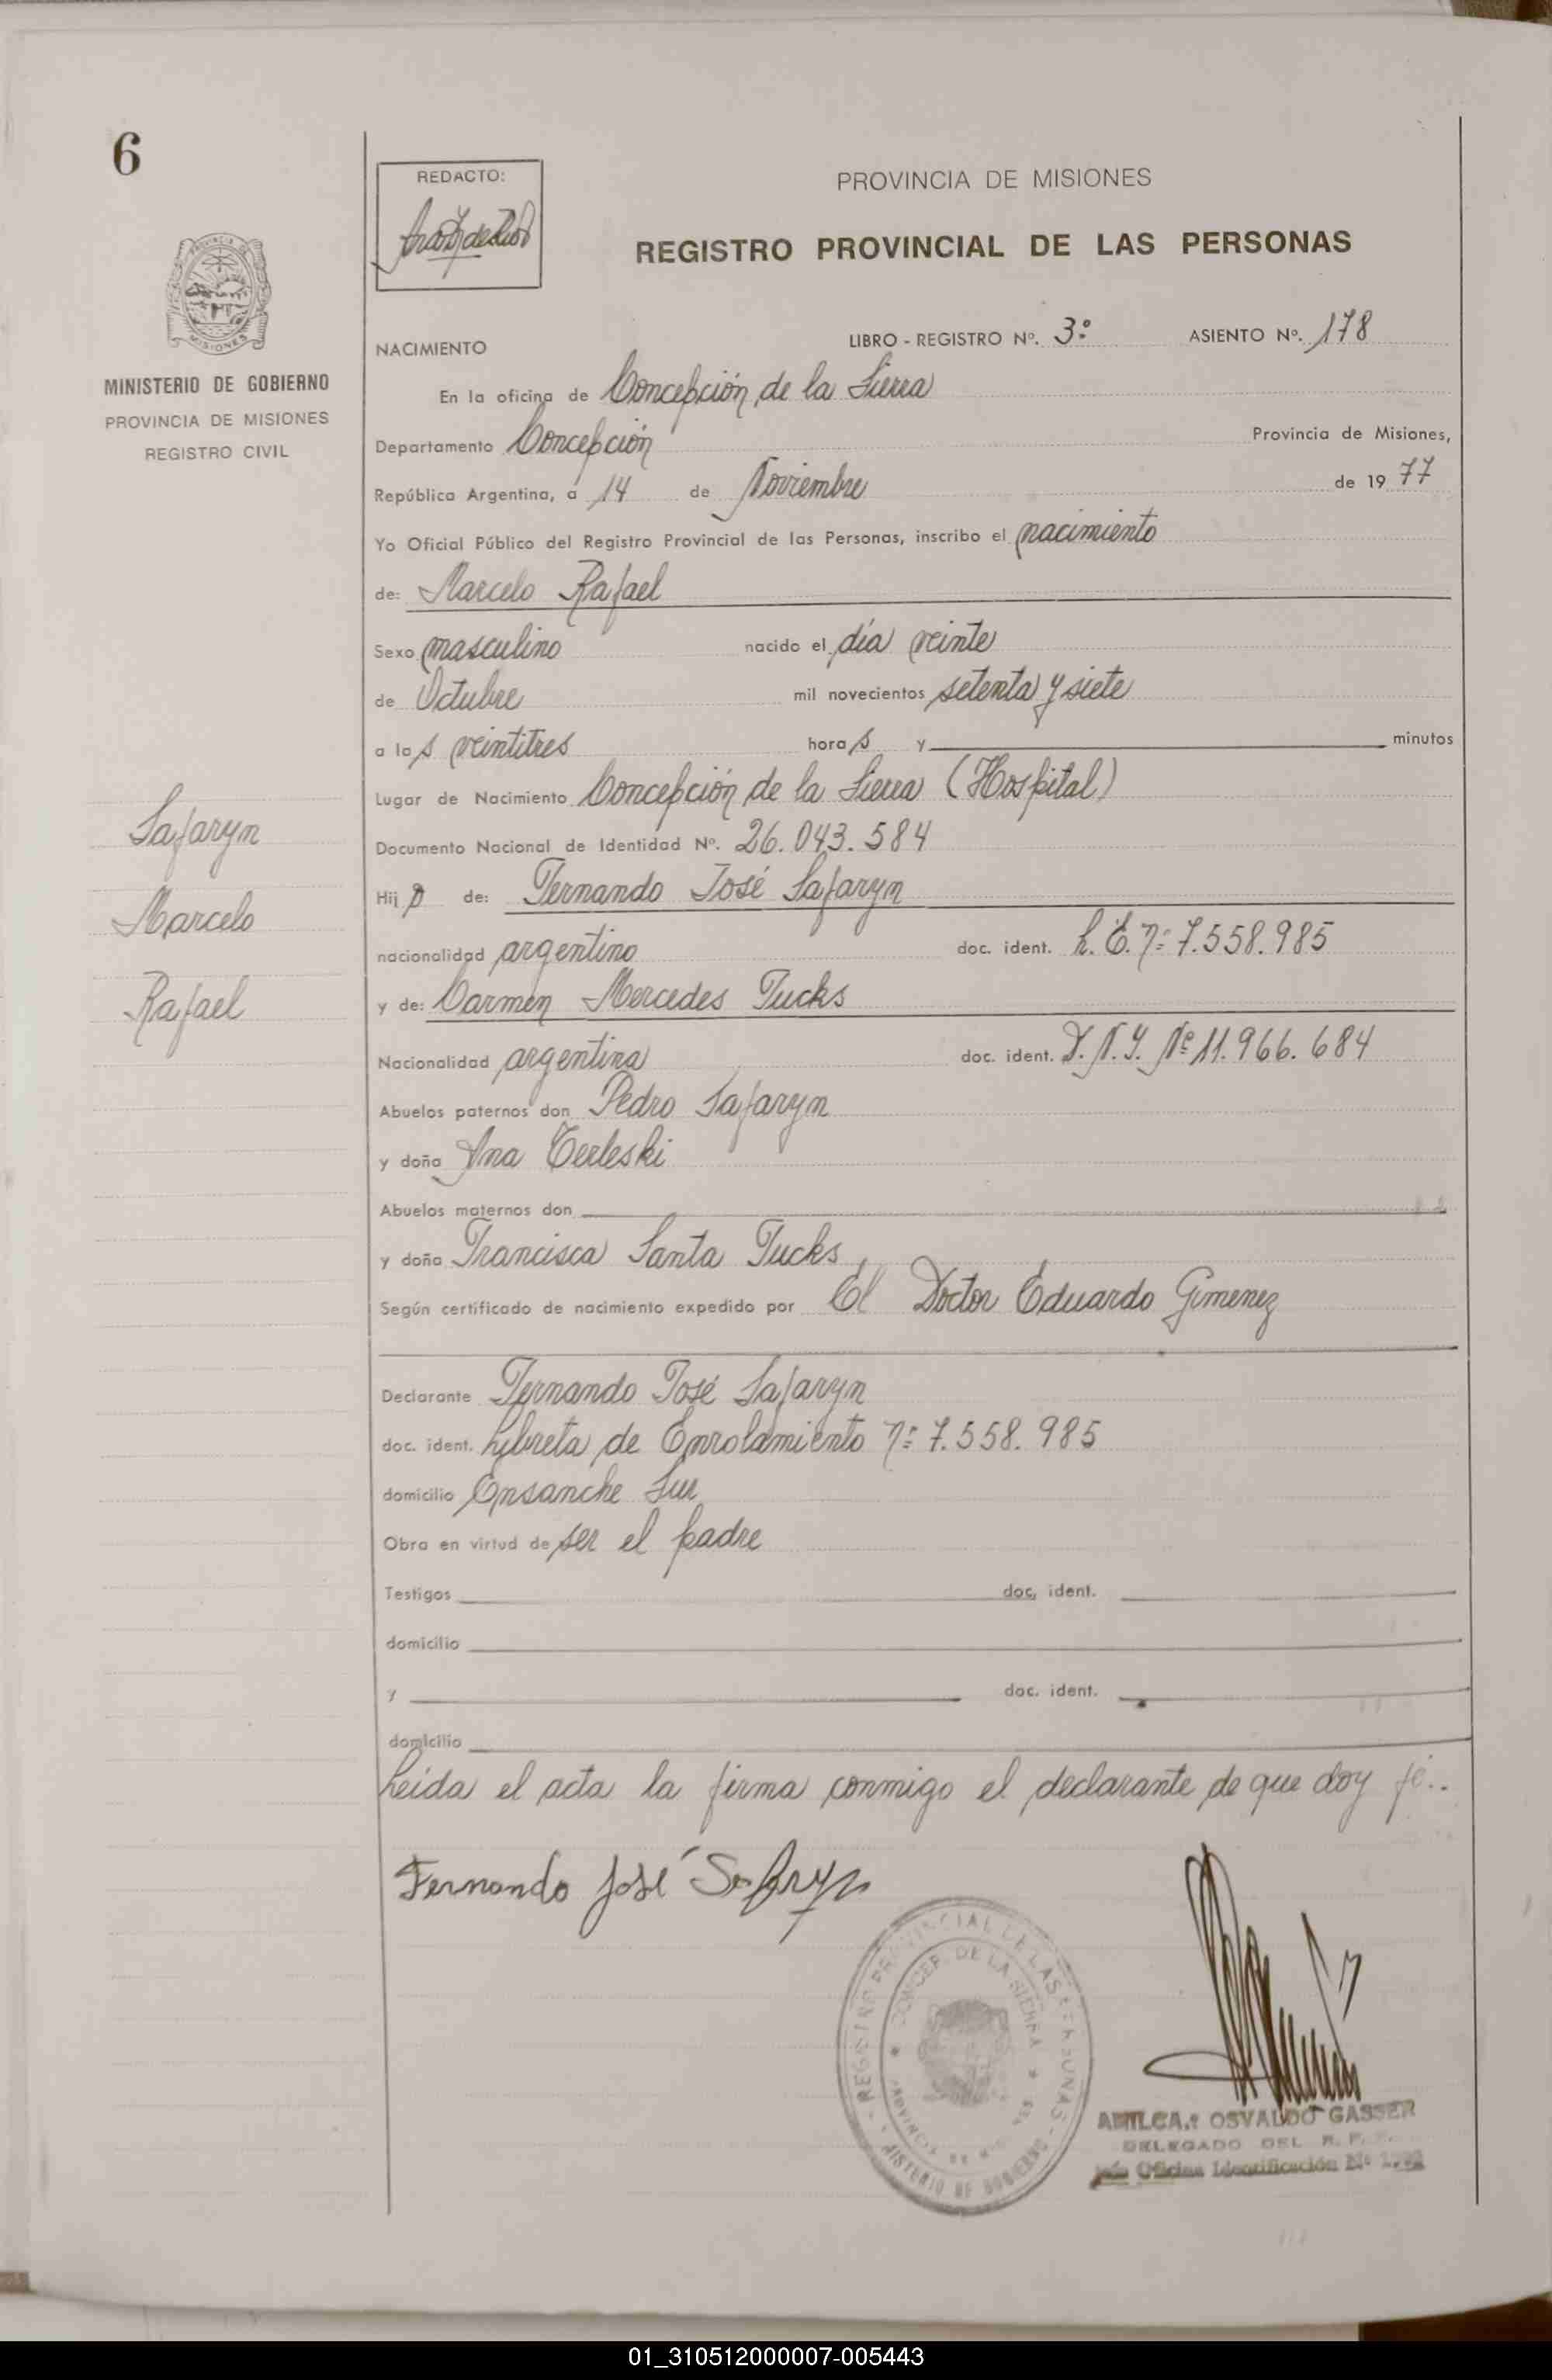 6
REDACTO:
PROVINCIA DE MISIONES
REGISTRO PROVINCIAL DE LAS PERSONAS
MISIONES
MINISTERIO DE GOBIERNO
PROVINCIA DE MISIONES
REGISTRO CIVIL
NACIMIENTO LIBRO - REGISTRO Nº. 3º ASIENTO Nº. 178
En la oficina de Concepción de la Sierra
Departamento Concepción Provincia de Misiones,
República Argentina, a 14 de Noviembre de 1977
Yo Oficial Público del Registro Provincial de las Personas, inscribo el nacimiento
de: Marcelo Rafael
Sexo masculino nacido el día veinte
de Octubre mil novecientos setenta y siete
a las veintitres horas y minutos
Lugar de Nacimiento Concepción de la Sierra (Hospital)
Safaryn
Marcelo
Rafael
Documento Nacional de Identidad Nº. 26.043.584
Hijo de: Fernando José Safaryn
nacionalidad argentino doc. ident. L.E. nº 7.558.985
y de: Carmen Mercedes Fucks
Nacionalidad argentina doc. ident. D.N.I. Nº 11.966.684
Abuelos paternos don Pedro Safaryn
y doña Ana Terleski
Abuelos maternos don
y doña Francisca Santa Fucks
Según certificado de nacimiento expedido por El Doctor Eduardo Gimenez
Declarante Fernando José Safaryn
doc. ident. Lybreta de Enrolamiento nº 7.558.985
domicilio Ensanche Sur
Obra en virtud de ser el padre
Testigos doc. ident.
domicilio
y doc. ident.
domicilio
Leida el acta la firma conmigo el declarante de que doy fé..
Fernando José Safaryn
REGISTRO PROVINCIAL DE LAS PERSONAS
CONCEP. DE LA SIERRA
PROVINCIA DE MISIONES
MINISTERIO DE GOBIERNO
AMILCAR OSVALDO GASSER
DELEGADO DEL R. P.
Oficina Identificación Nº
01_310512000007-005443